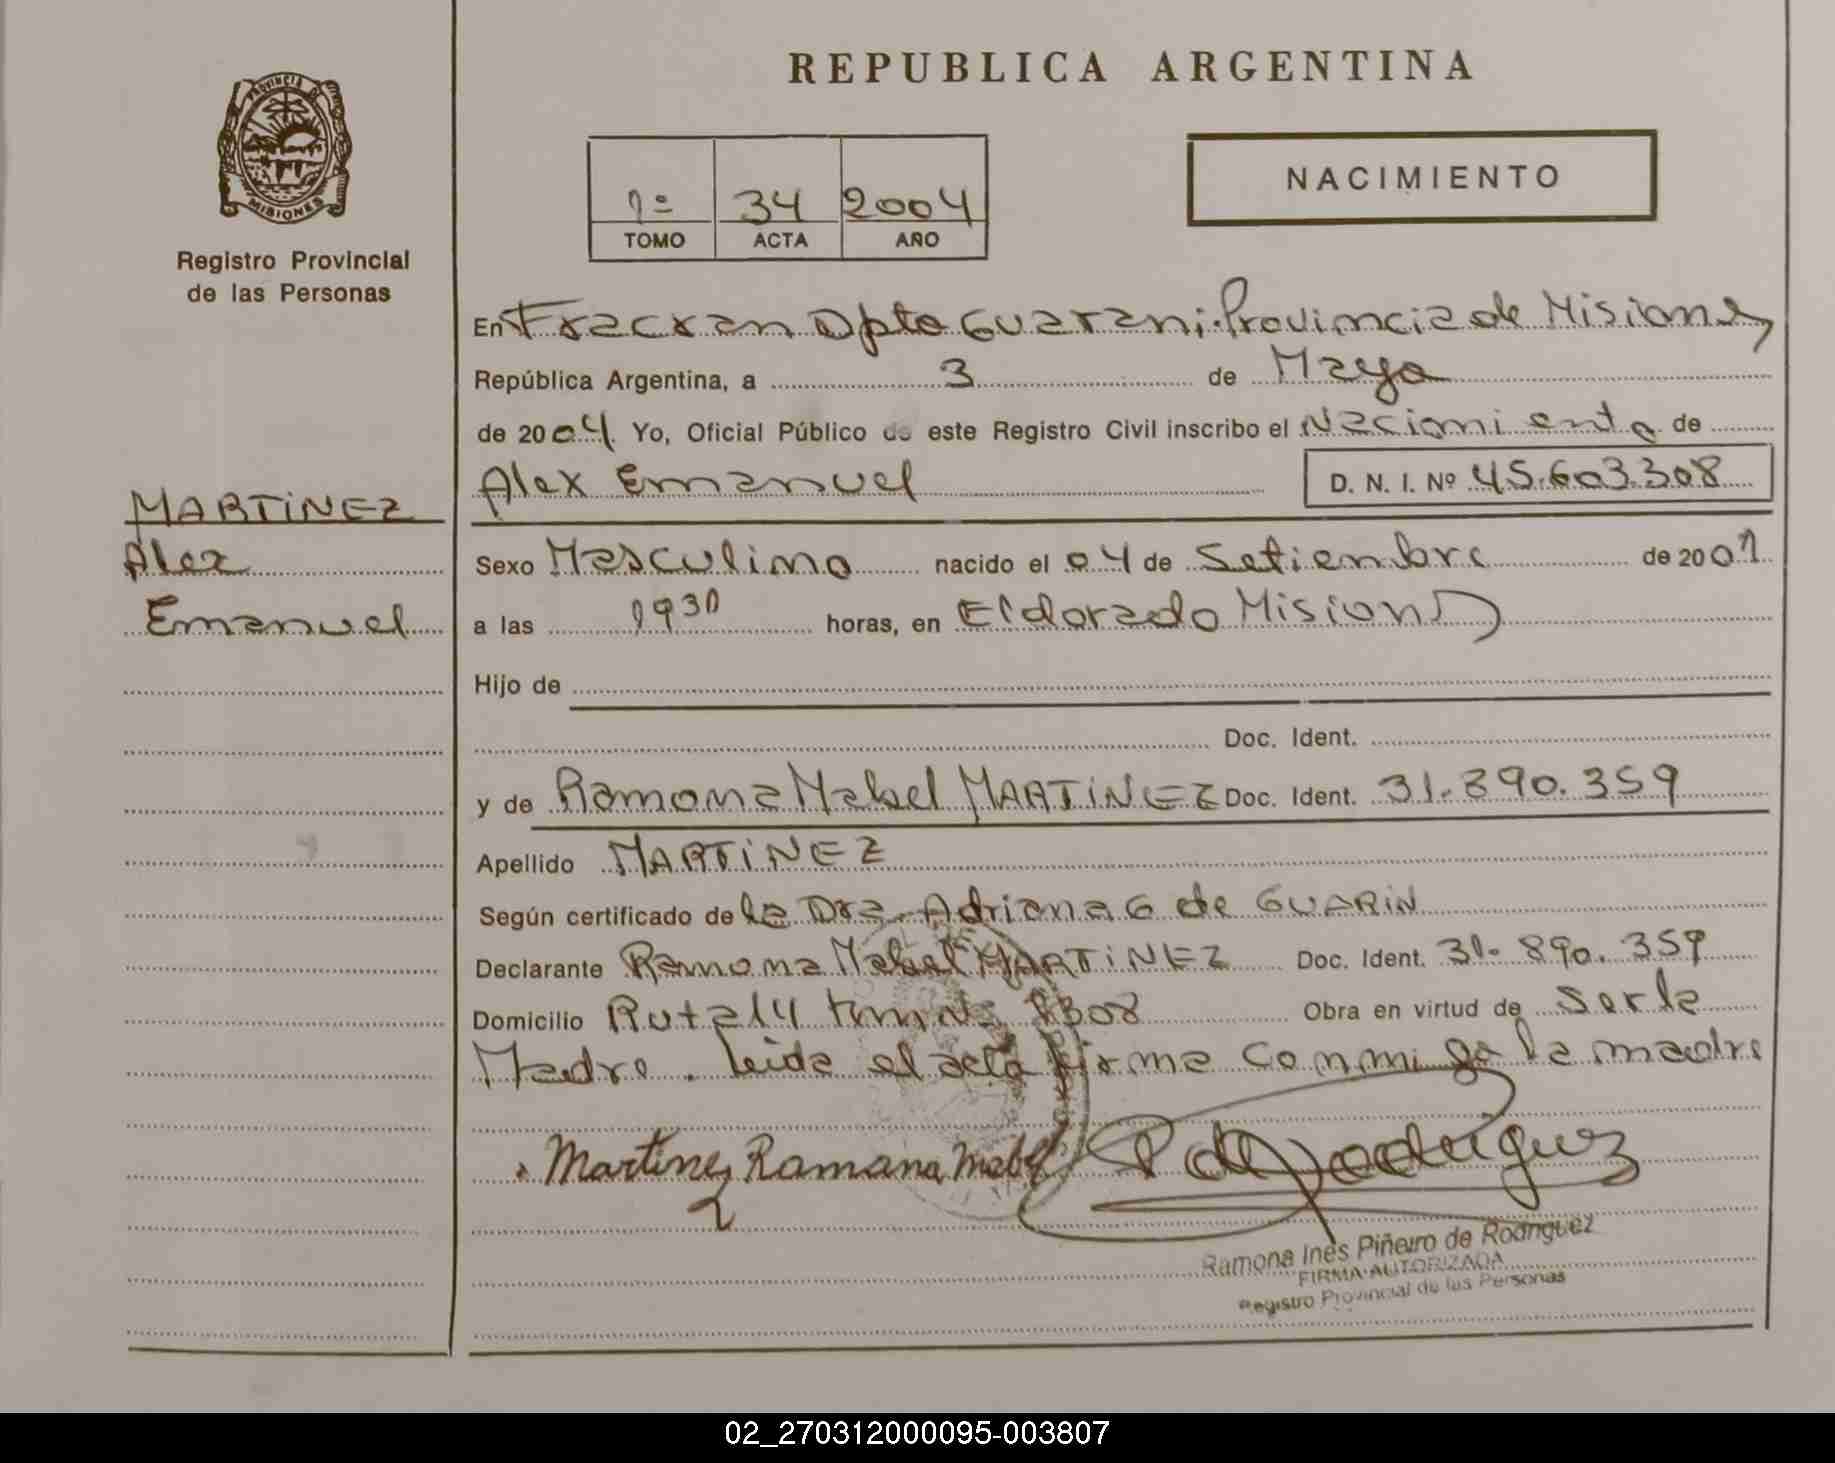 REPUBLICA ARGENTINA
PROVINCIA DE
MISIONES
Registro Provincial
de las Personas
1º 34 2004
TOMO ACTA AÑO
NACIMIENTO
En Fracran Dpto Guarani. Provincia de Misiones,
República Argentina, a 3 de Mayo
de 2004. Yo, Oficial Público de este Registro Civil inscribo el Nacimiento de
Alex Emanuel D. N. I. Nº 45.603.308
MARTINEZ
Alex
Emanuel
Sexo Masculino nacido el 04 de Setiembre de 2001
a las 1930 horas, en Eldorado Misiones
Hijo de
Doc. Ident.
y de Ramona Mabel MARTINEZ Doc. Ident. 31.890.359
Apellido MARTINEZ
Según certificado de la Dra. Adriana G de GUARIN
Declarante Ramona Mabel MARTINEZ Doc. Ident. 31.890.359
Domicilio Ruta 14 km Nº 1308 Obra en virtud de ser la
Madre. Leida el acta firma conmigo la madre
Martinez Ramana Mabel R de Rodriguez
Ramona Inés Piñeiro de Rodriguez
FIRMA AUTORIZADA
Registro Provincial de las Personas
02_270312000095-003807